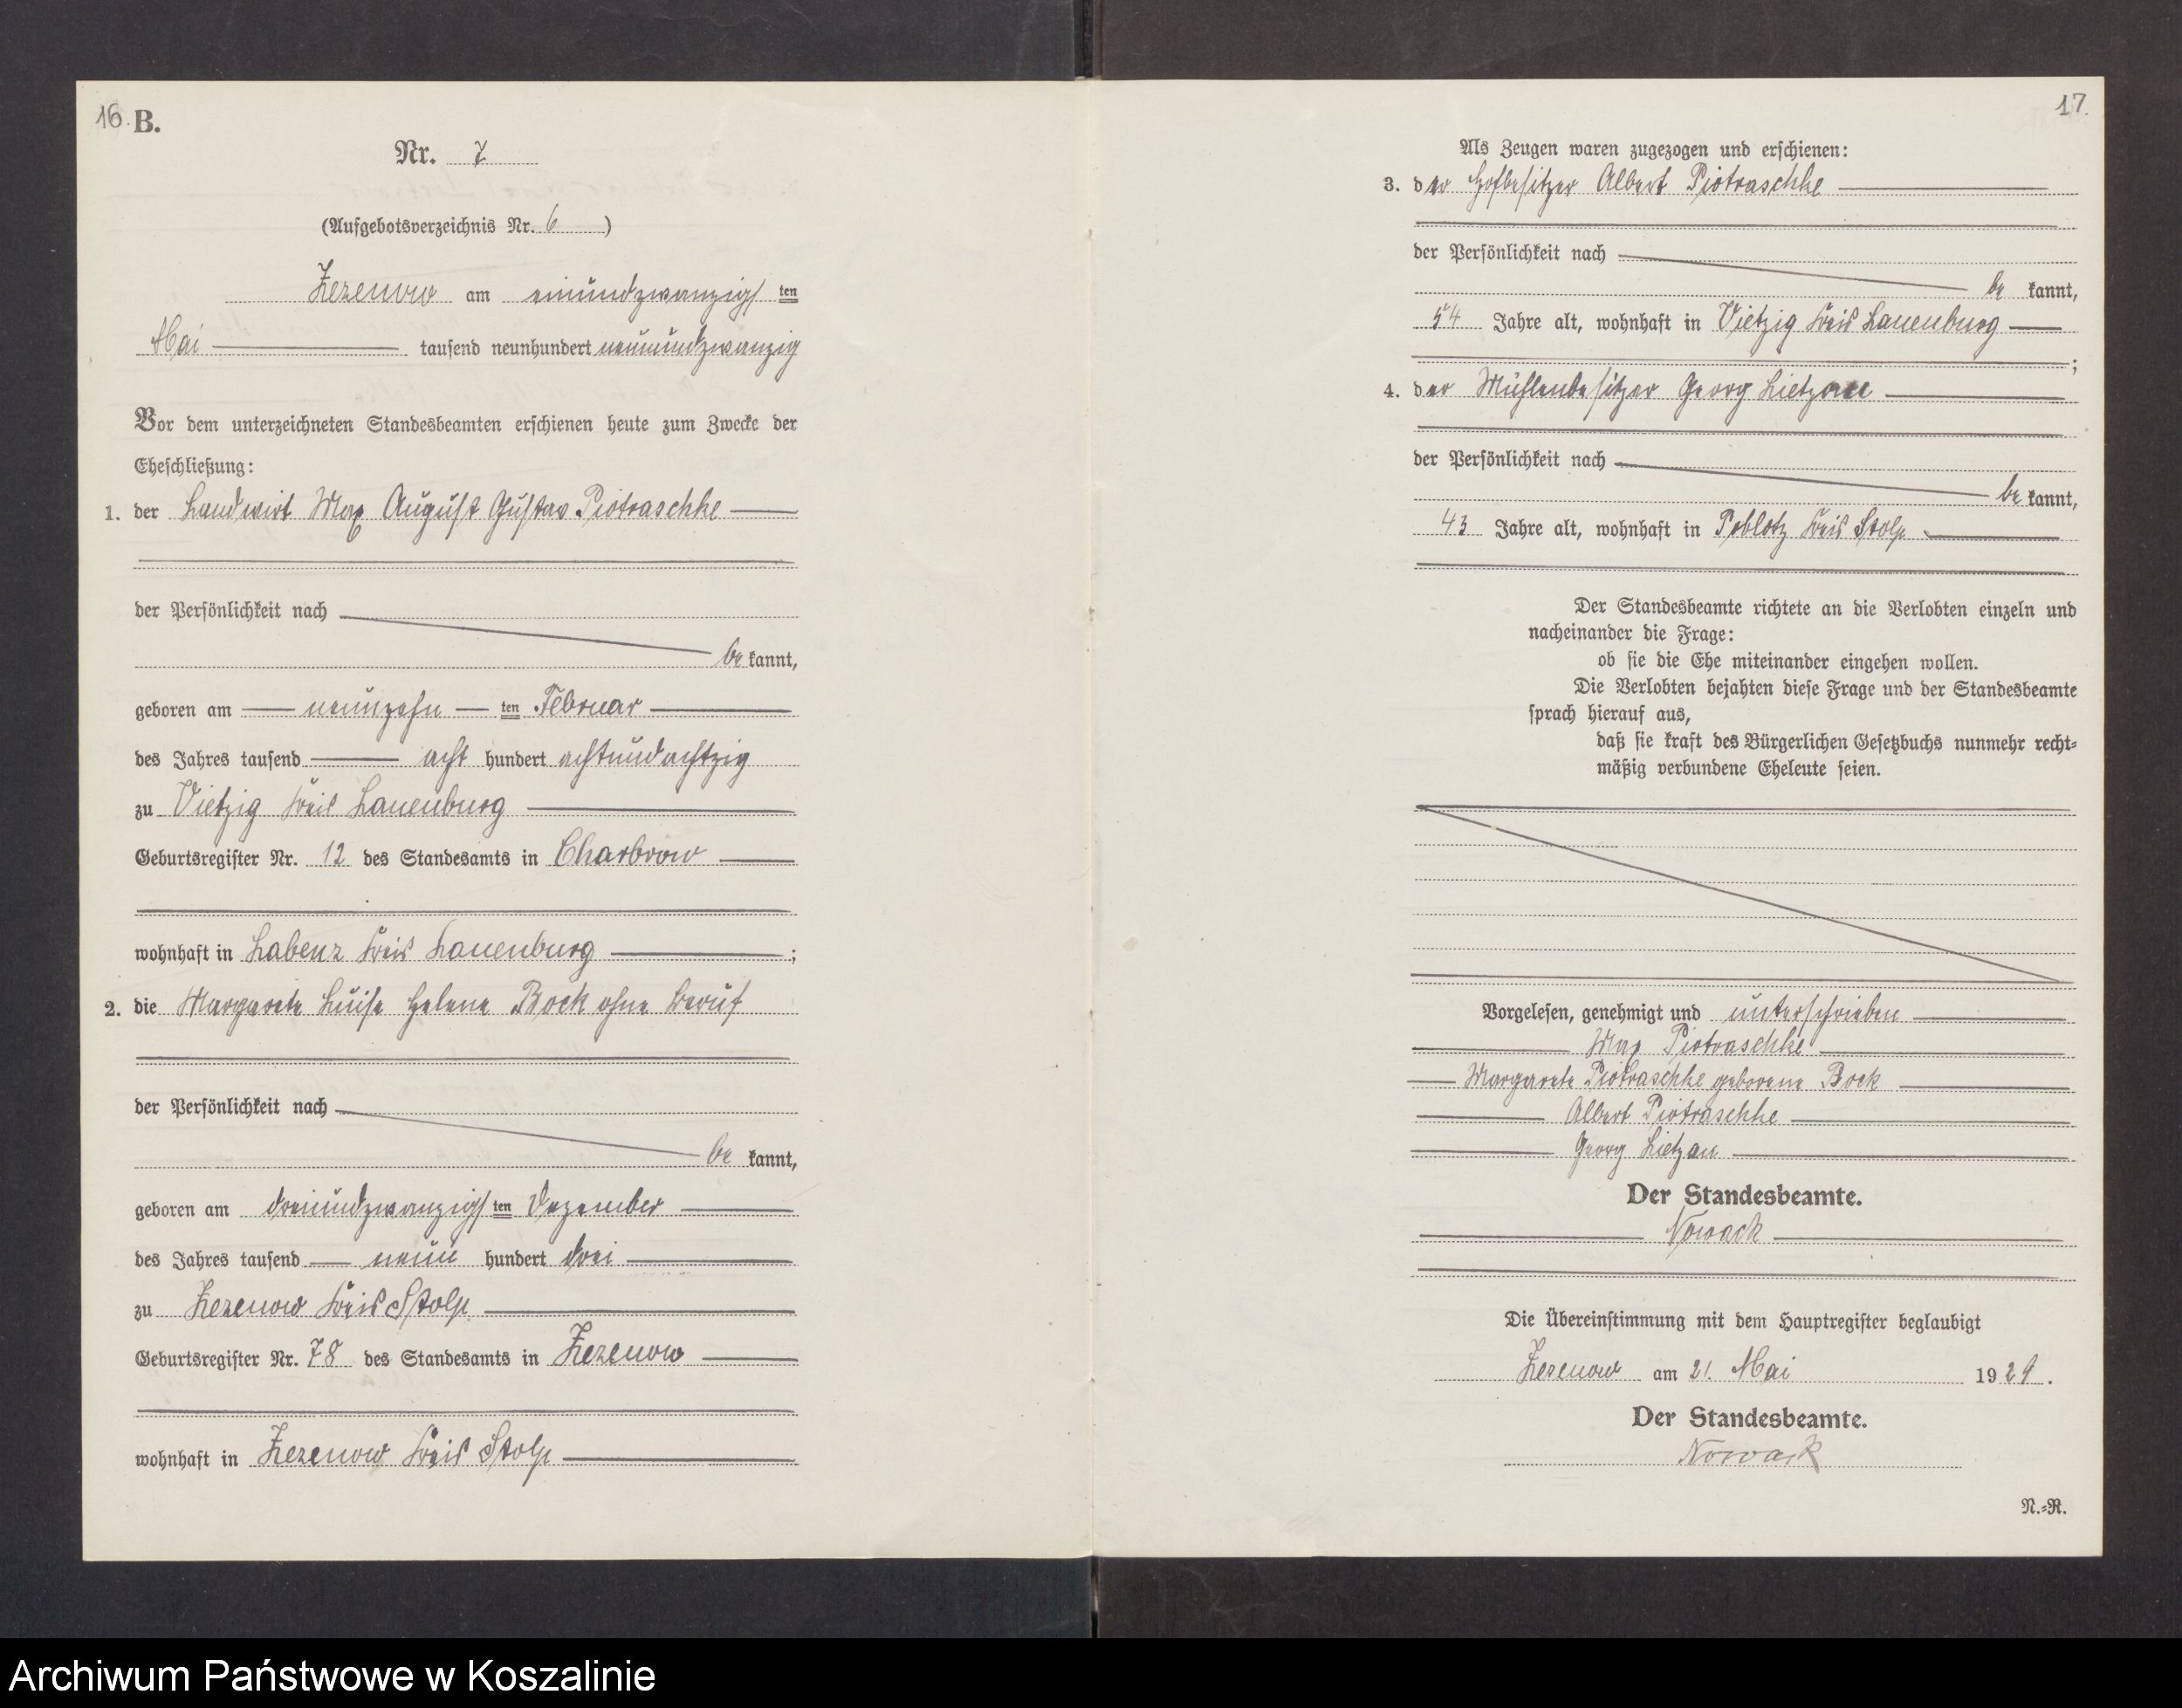 16. B.
Nr. 7
(Aufgebotsverzeichnis Nr. 6 )
Zezenow am einundzwanzigs ten
Mai tausend neunhundert neunundzwanzig
Vor dem unterzeichneten Standesbeamten erschienen heute zum Zwecke der
Eheschließung:
1. der Landwirt Max August Gustav Piotraschke
der Persönlichkeit nach
be kannt,
geboren am neunzehn ten Februar
des Jahres tausend acht hundert achtundachtzig
zu Vietzig Kreis Lauenburg
Geburtsregister Nr. 12 des Standesamts in Charbrow
wohnhaft in Labenz Kreis Lauenburg ;
2. die Margarete Luise Helene Bock ohne Beruf
der Persönlichkeit nach
be kannt,
geboren am dreiundzwanzigs ten Dezember
des Jahres tausend neun hundert drei
zu Zezenow Kreis Stolp
Geburtsregister Nr. 78 des Standesamts in Zezenow
wohnhaft in Zezenow Kreis Stolp
17.
Als Zeugen waren zugezogen und erschienen:
3. der Hofbesitzer Albert Piotraschke
der Persönlichkeit nach
be kannt,
54 Jahre alt, wohnhaft in Vietzig Kreis Lauenburg
;
4. der Mühlenbesitzer Georg Lietzau
der Persönlichkeit nach
be kannt,
43 Jahre alt, wohnhaft in Poblotz Kreis Stolp
Der Standesbeamte richtete an die Verlobten einzeln und
nacheinander die Frage:
ob sie die Ehe miteinander eingehen wollen.
Die Verlobten bejahten diese Frage und der Standesbeamte
sprach hierauf aus,
daß sie kraft des Bürgerlichen Gesetzbuchs nunmehr recht-
mäßig verbundene Eheleute seien.
Vorgelesen, genehmigt und unterschrieben
Max Piotraschke
Margarete Piotraschke geborene Bock
Albert Piotraschke
Georg Lietzau
Der Standesbeamte.
Nowack
Die Übereinstimmung mit dem Hauptregister beglaubigt
Zezenow am 21. Mai 1929.
Der Standesbeamte.
Nowack
N.-R.
Archiwum Państwowe w Koszalinie